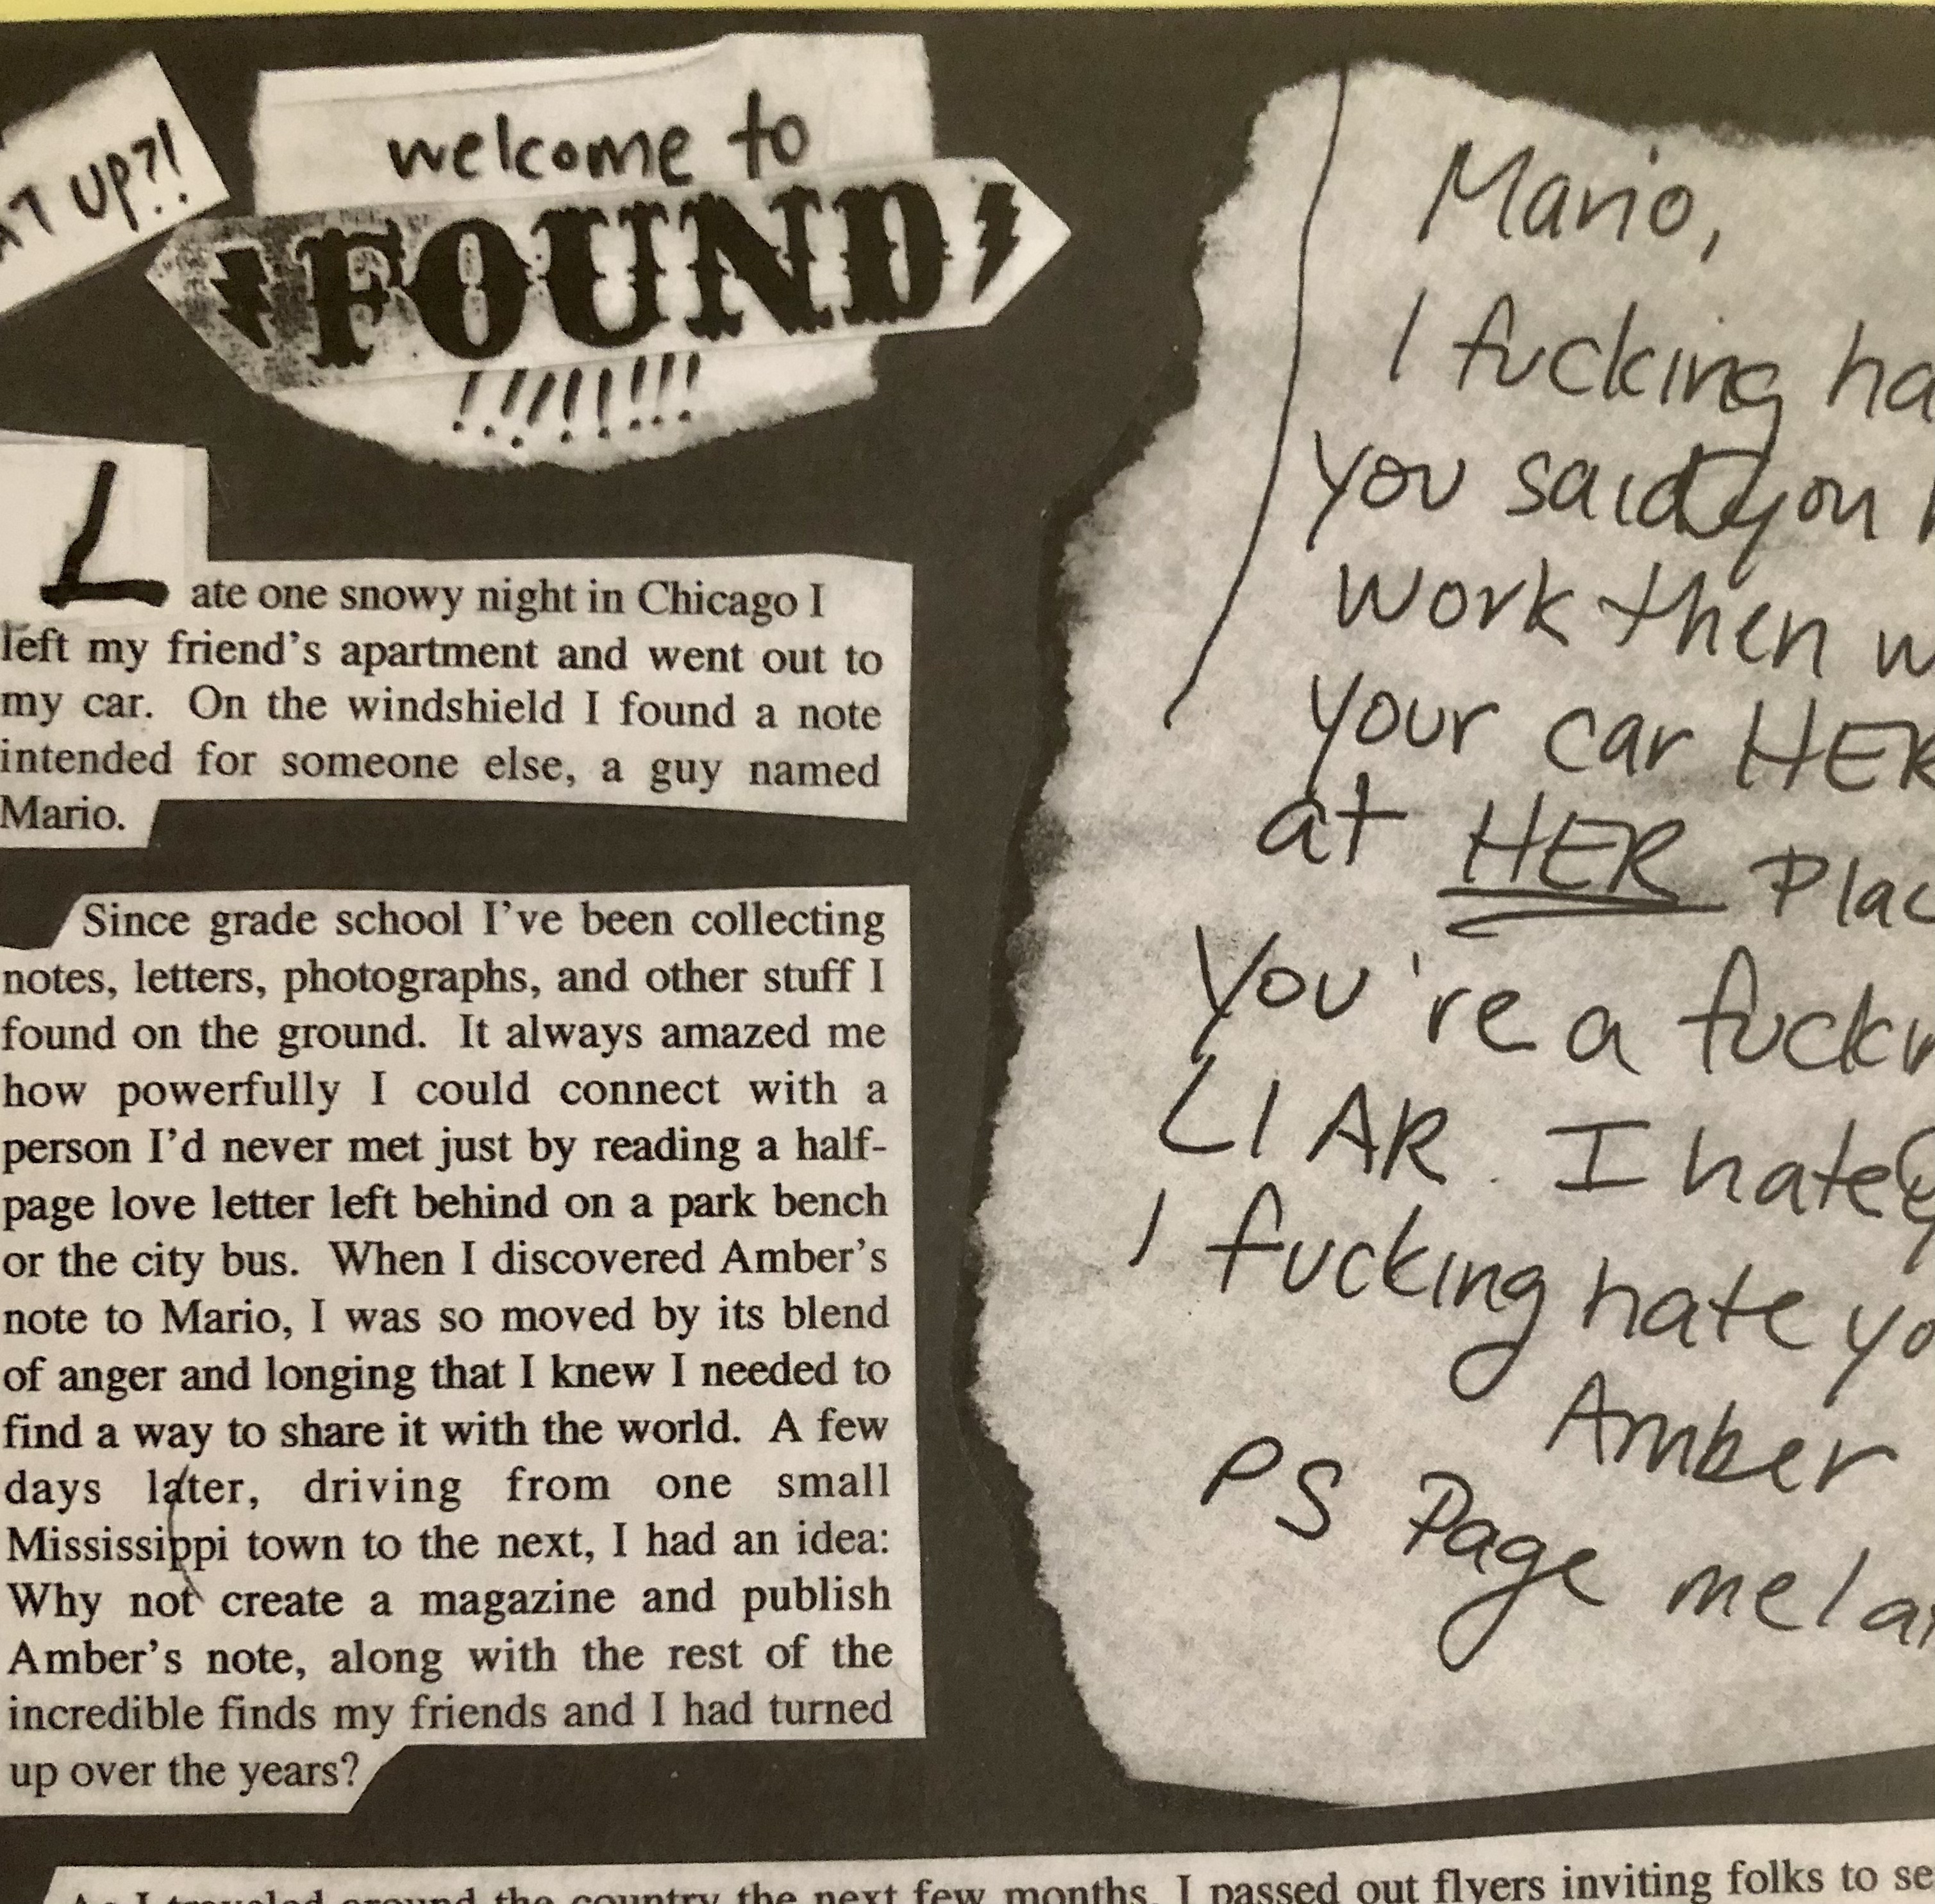 UP?!
welcome to
FOUND
!!!!!!!!
Late one snowy night in Chicago I
left my friend's apartment and went out to
my car. On the windshield I found a note
intended for someone else, a guy named
Mario.
Since grade school I've been collecting
notes, letters, photographs, and other stuff I
found on the ground. It always amazed me
how powerfully I could connect with a
person I'd never met just by reading a half-
page love letter left behind on a park bench
or the city bus. When I discovered Amber's
note to Mario, I was so moved by its blend
of anger and longing that I knew I needed to
find a way to share it with the world. A few
days later, driving from one small
Mississippi town to the next, I had an idea:
Why not create a magazine and publish
Amber's note, along with the rest of the
incredible finds my friends and I had turned
up over the years?
Mario,
I fucking ha
you said you
work then w
your car HER
at HER Plac
You're a fuckin
LIAR. I hate
I fucking hate yo
Amber
PS Page me la
As I traveled around the country the next few months, I passed out flyers inviting folks to se